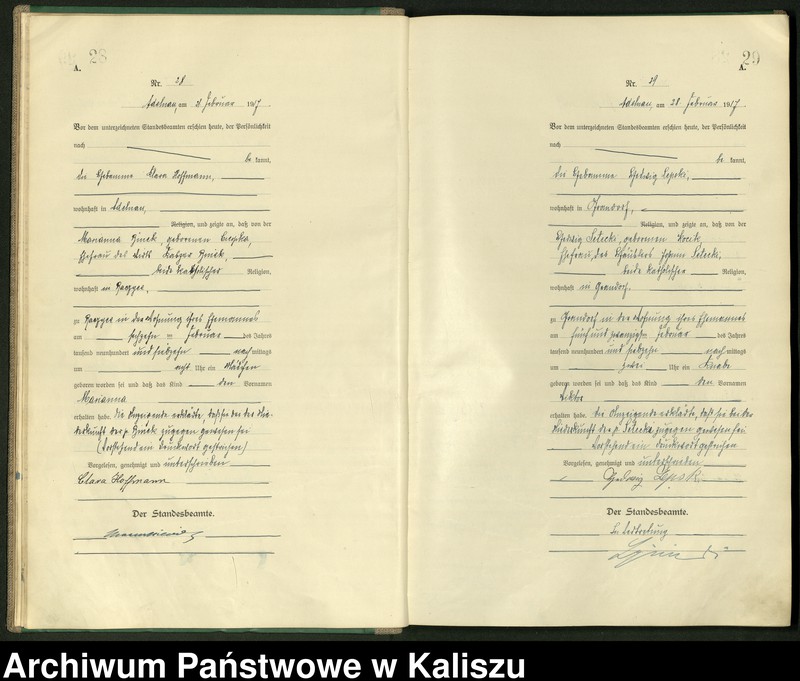 28
A.
Nr. 28
Adelnau, am Februar 1917.
Vor dem unterzeichneten Standesbeamten erschien heute, der Persönlichkeit
nach
be kannt,
die Hebamme Clara Hoffmann,
wohnhaft in Adelnau,
Religion, und zeigte an, daß von der
Marianna geborenen
Ehefrau des
beide katholischer Religion,
wohnhaft in
zu in der Wohnung ihres Ehemannes
am Februar des Jahres
tausend neunhundert und siebzehn nach mittags
um acht Uhr ein Mädchen
geboren worden sei und daß das Kind den Vornamen
Marianna
erhalten habe. Die Anzeigende erklärte, daß sie bei der Nie-
derkunft der p. zugegen gewesen sei
(Vorstehend ein Druckwort gestrichen)
Vorgelesen, genehmigt und unterschrieben
Clara Hoffmann
Der Standesbeamte.
29
A.
Nr. 29
Adelnau, am 28. Februar 1917.
Vor dem unterzeichneten Standesbeamten erschien heute, der Persönlichkeit
nach
be kannt,
die Hebamme Hedwig Lepski,
wohnhaft in Grandorf,
Religion, und zeigte an, daß von der
Hedwig geborenen
Ehefrau des Häuslers
beide katholischer Religion,
wohnhaft in Grandorf.
zu Grandorf in der Wohnung ihres Ehemannes
am fünf und zwanzigsten Februar des Jahres
tausend neunhundert und siebzehn nach mittags
um zwei Uhr ein Knabe
geboren worden sei und daß das Kind den Vornamen
erhalten habe. Die Anzeigende erklärte, daß sie bei der
Niederkunft der p. zugegen gewesen sei
Vorstehend ein Druckwort gestrichen
Vorgelesen, genehmigt und unterschrieben
Hedwig
Der Standesbeamte.
In Vertretung
Archiwum Państwowe w Kaliszu